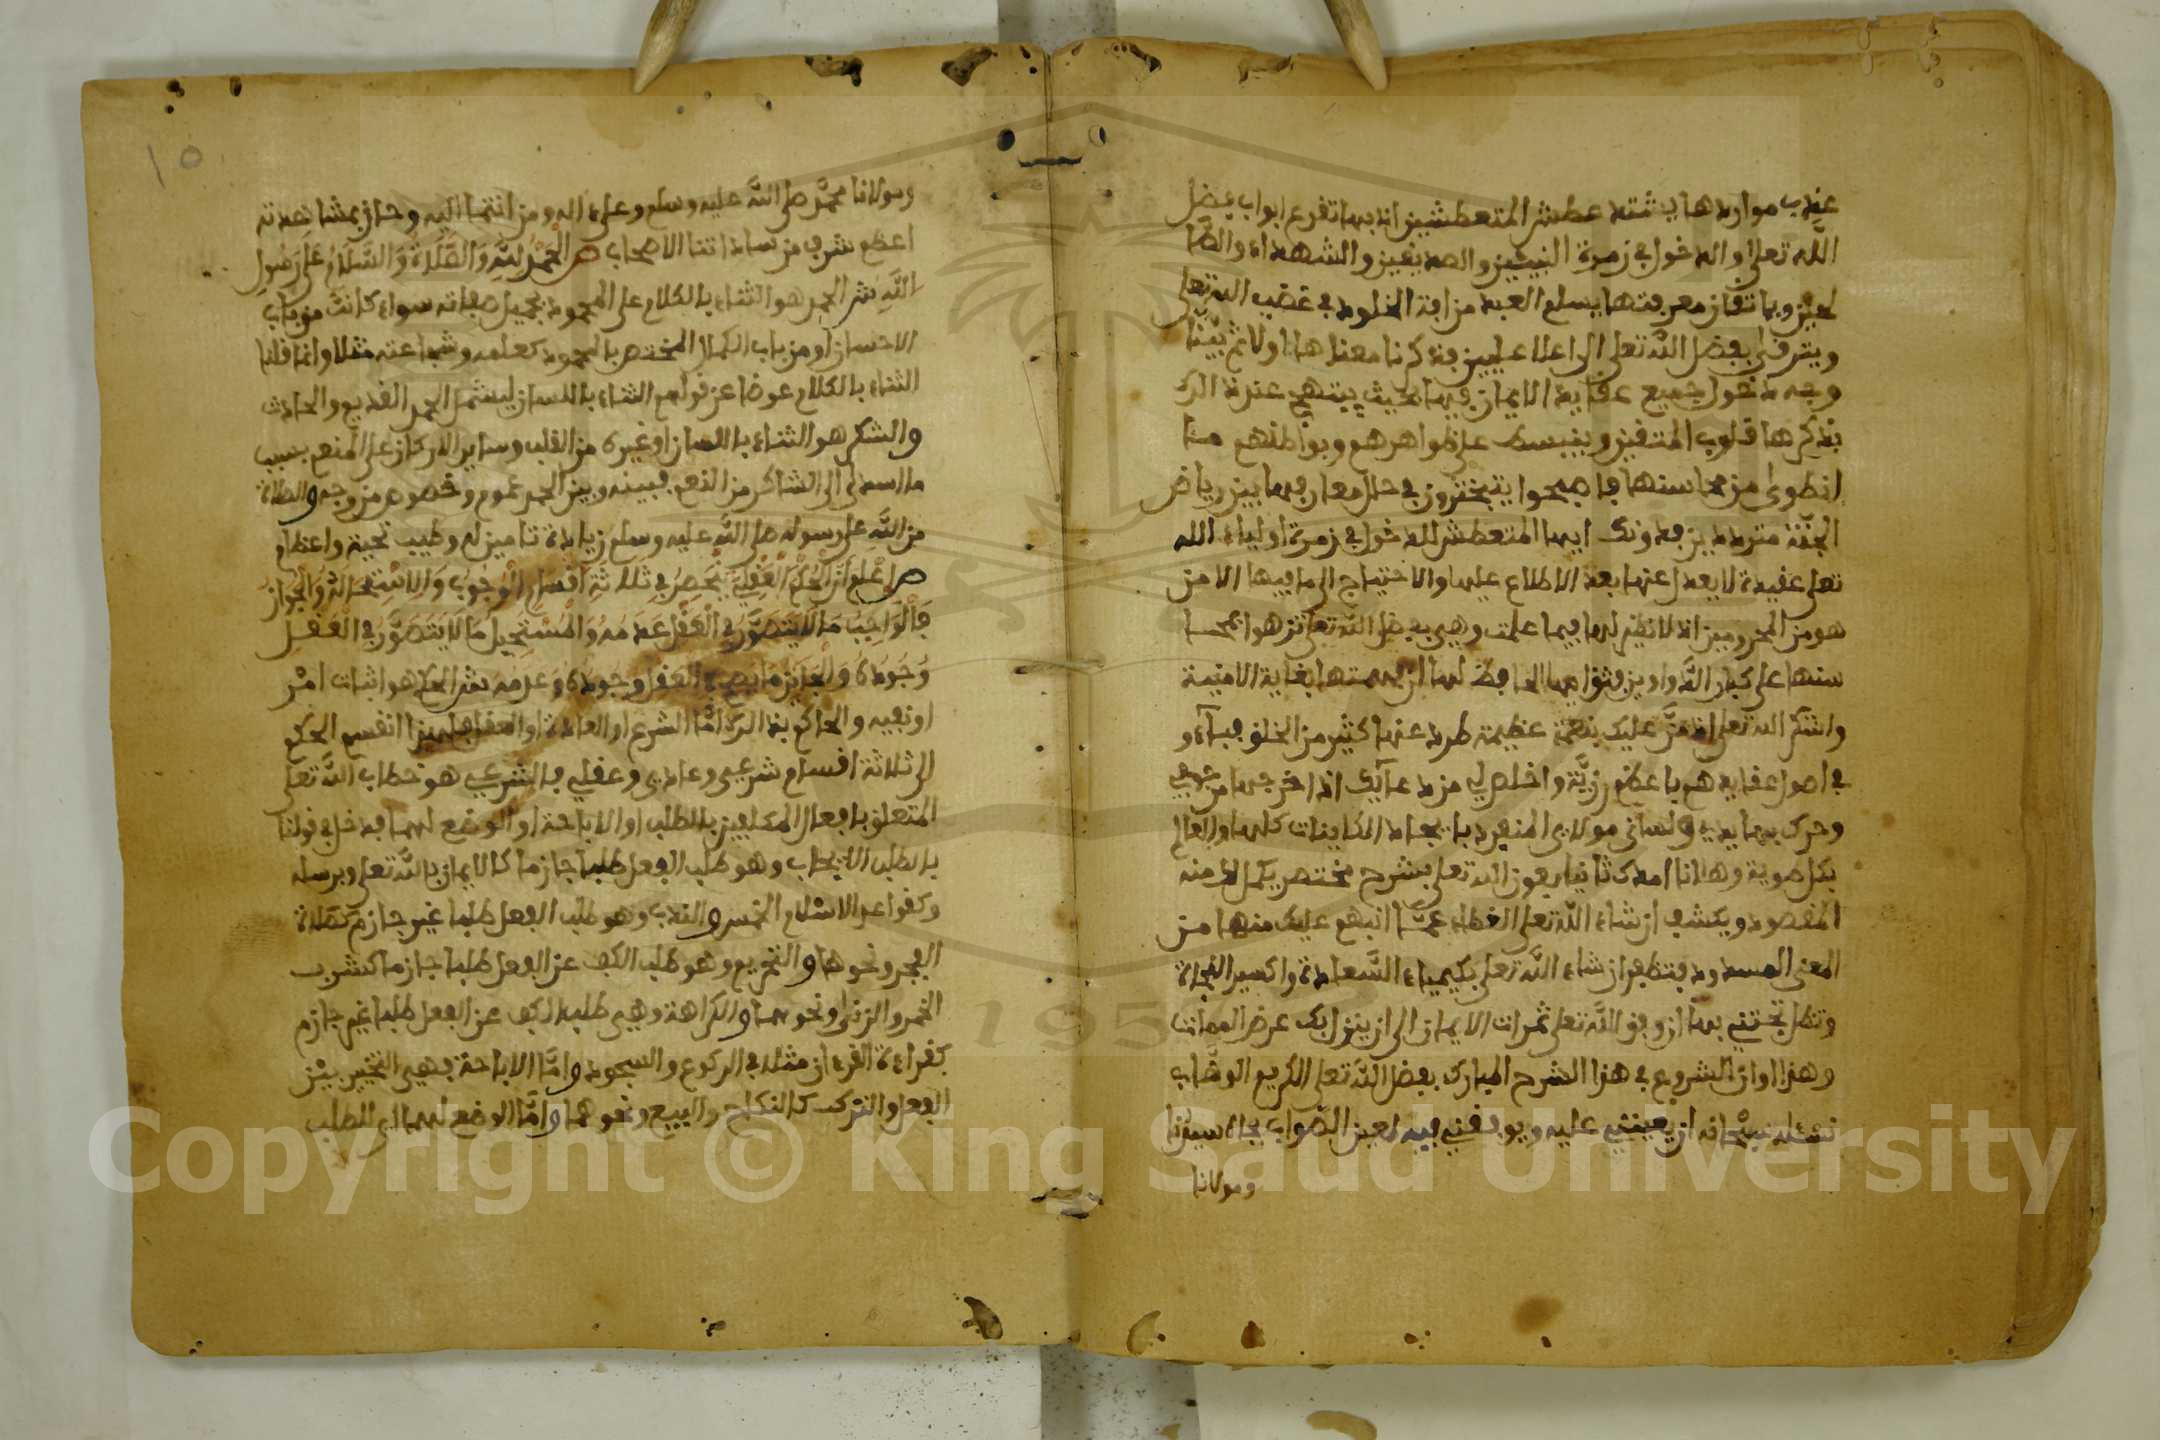 عذب مواردها يشتد عطش المتعطشين اذ بها تقرع ابواب فضل
الله تعلى والدخول في زمرة النبيئين والصديقين والشهداء والصا
لحين وباتقان معرفتها يسلم العبد من افة الخلود في غضب الله تعلى
ويترقى بفضل الله تعلى الى اعلا عليين فذكرنا معناها اولا ثم بينا
وجه دخول جميع عقايد الايمان فيها بحيث يبتهج عند ذلك
بذكرها قلوب المتقين وينبسط على ظواهرهم وبواطنهم ما
انطوى من محاسنها فاصبحوا يتبخترون في حلل معارفها بين رياض
الجنة مترددين فدونك ايها المتعطش للدخول في زمرة اولياء الله
تعلى عقيدة لا يعدل عنها بعد الاطلاع عليها والاحتياج الى ما فيها الا من
هو من المحرومين اذ لا نظير لها فيما علمت وهي بفضل الله تعلى تزهوا بمحا
سنها على كبار الدواوين فثق ايها الحافظ لها ان فهمتها بغاية الامنية
واشكر الله تعلى اذ من عليك بنعمة عظيمة طرد عنها كثير من الخلق فباءو
في اصول عقايدهم باعظم رزية واخلص لي من دعآيك اذ اخرجها من جهتي
وحرك بها يدي ولساني مولاي المنفرد بايجاد الكاينات كلها والعالم
بكل طوية وها انا امدك ثانيا بعون الله تعلى بشرح مختصر يكمل لك منه
المقصود ويكشف ان شاء الله تعلى الغطاء عما انبهم عليك منها من
المعنى المسدود فتظفر ان شاء الله تعلى بكيمياء السعادة واكسير النجاة
وتظل تجتني بها ان وفق الله تعلى ثمرات الايمان الى ان ينزل بك عرض الممات
وهذا اوان الشروع في هذا الشرح المبارك بفضل الله تعلى الكريم الوهاب
نسئله سبحانه ان يعينني عليه ويوفقني فيه لعين الصواب بجاه سيدنا
ومولانا
١٥
ومولانا محمد صلى الله عليه وسلم وعلى اله ومن انتما اليه وحاز بمشاهدته
اعظم شرف من ساداتنا الاصحاب ص الحمد لله والصلاة والسلام على رسول
الله ش الحمد هو الثناء بالكلام على المحمود بجميل صفاته سواء كانت من باب
الاحسان او من باب الكمال المختص بالمحمود كعلمه وشجاعته مثلا وانما قلنا
الثناء بالكلام عوضا عن قولهم الثناء باللسان ليشمل الحمد القديم والحادث
والشكر هو الثناء باللسان او غيره من القلب وساير الاركان على المنعم بسبب
ما اسدى الى الشاكر من النعم فبينه وبين الحمد عموم وخصوص من وجه والصلاة
من الله على رسوله صلى الله عليه وسلم زيادة تامين له وطيب تحية واعظام
ص اعلم ان الحكم العقلي ينحصر في ثلاثة اقسام الوجوب والاستحالة والجواز
فالواجب ما لا يتصور في العقل عدمه والمستحيل ما لا يتصور في العقل
وجوده والجايز ما يصح في العقل وجوده وعدمه ش الحكم هو اثبات امر
او نفيه والحاكم بذلك اما الشرع او العادة او العقل فلهذا انقسم الحكم
الى ثلاثة اقسام شرعي وعادي وعقلي فالشرعي هو خطاب الله تعلى
المتعلق بافعال المكلفين بالطلب او الاباحة او الوضع لهما فدخل في قولنا
بالطلب الايجاب وهو طلب الفعل طلبا جازما كالايمان بالله تعلى وبرسله
وكقواعد الاسلام الخمس والندب وهو طلب الفعل طلبا غير جازم كصلاة
الفجر ونحوها والتحريم وهو طلب الكف عن الفعل طلبا جازما كشرب
الخمر والزنى ونحوهما والكراهة وهي طلب الكف عن الفعل طلبا غير جازم
كقراءة القرءان مثلا في الركوع والسجود واما الاباحة فهي التخيير بين
الفعل والترك كالنكاح والبيع ونحوهما واما الوضع لهما اي للطلب
Copyright © King Saud University
195